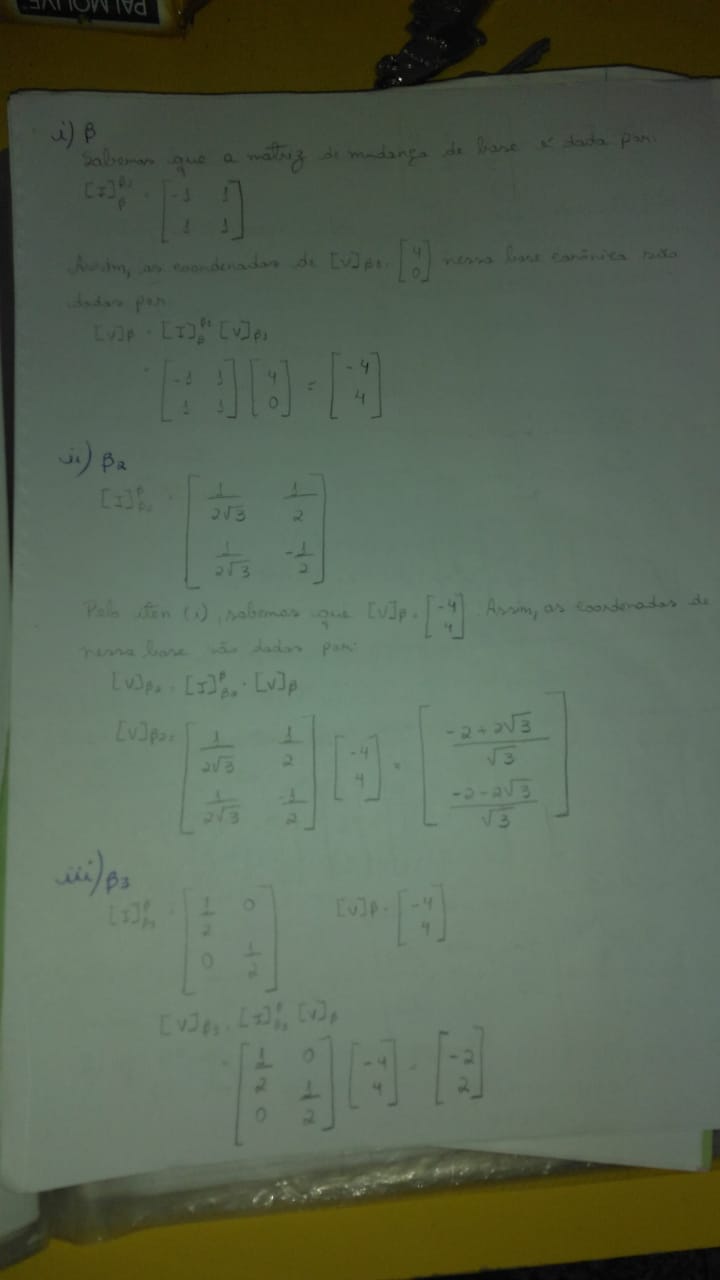 PALMOLIVE
i) β
Sabemos que a matriz de mudança de base é dada por:
[I]^β₁_β = [-1 1; 1 1]
Assim, as coordenadas de [v]β₁ = [4; 0] nessa base canônica são
dadas por
[v]β = [I]^β₁_β [v]β₁
= [-1 1; 1 1] [4; 0] = [-4; 4]
ii) β₂
[I]^β_β₂ = [1/2√3 1/2; 1/2√3 -1/2]
Pelo iten (i), sabemos que [v]β = [-4; 4]. Assim, as coordenadas de
nessa base são dadas por:
[v]β₂ = [I]^β_β₂ · [v]β
[v]β₂ = [1/2√3 1/2; 1/2√3 -1/2] [-4; 4] = [(-2+2√3)/√3; (-2-2√3)/√3]
iii) β₃
[I]^β_β₃ = [1/2 0; 0 1/2] [v]β = [-4; 4]
[v]β₃ = [I]^β_β₃ [v]β
= [1/2 0; 0 1/2] [-4; 4] = [-2; 2]